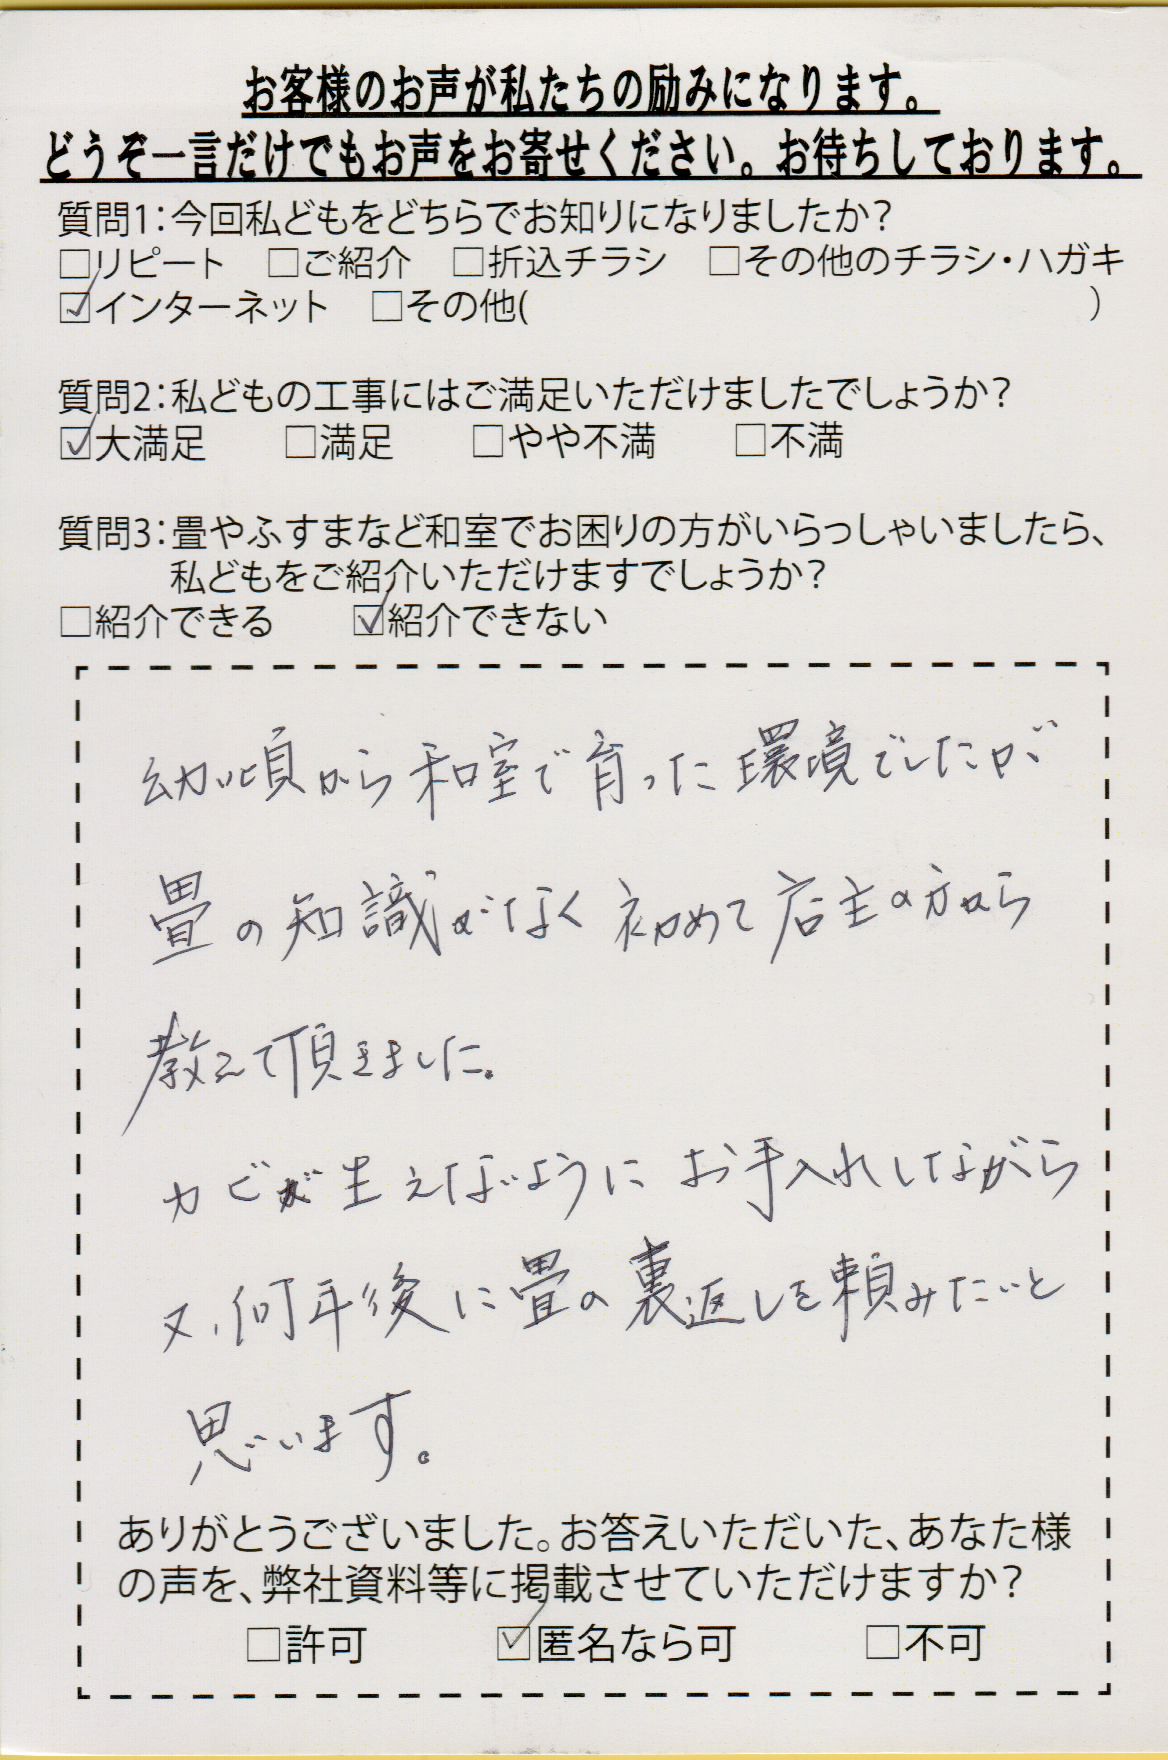 お客様のお声が私たちの励みになります。
どうぞ一言だけでもお声をお寄せください。お待ちしております。
質問1:今回私どもをどちらでお知りになりましたか?
□リピート □ご紹介 □折込チラシ □その他のチラシ・ハガキ
☑インターネット □その他( )
質問2:私どもの工事にはご満足いただけましたでしょうか?
☑大満足 □満足 □やや不満 □不満
質問3:畳やふすまなど和室でお困りの方がいらっしゃいましたら、
私どもをご紹介いただけますでしょうか?
□紹介できる ☑紹介できない
幼い頃から和室で育った環境でしたが
畳の知識がなく初めて店主の方から
教えて頂きました。
カビが生えないようにお手入れしながら
又、何年後に畳の裏返しを頼みたいと
思います。
ありがとうございました。お答えいただいた、あなた様
の声を、弊社資料等に掲載させていただけますか?
□許可 ☑匿名なら可 □不可